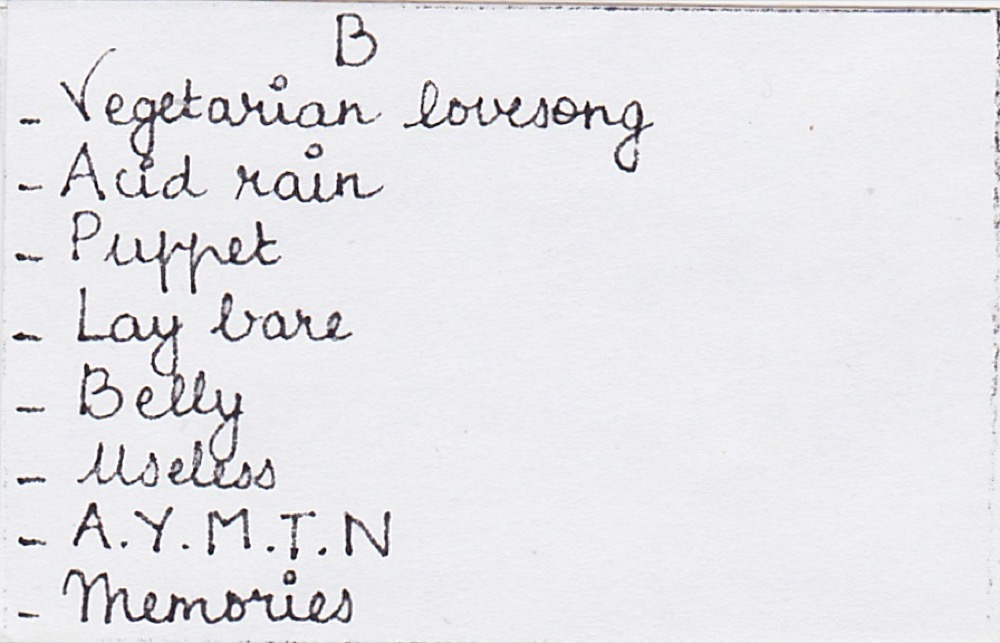 B
- Vegetarian lovesong
- Acid rain
- Puppet
- Lay bare
- Belly
- Useless
- A.Y.M.T.N
- Memories